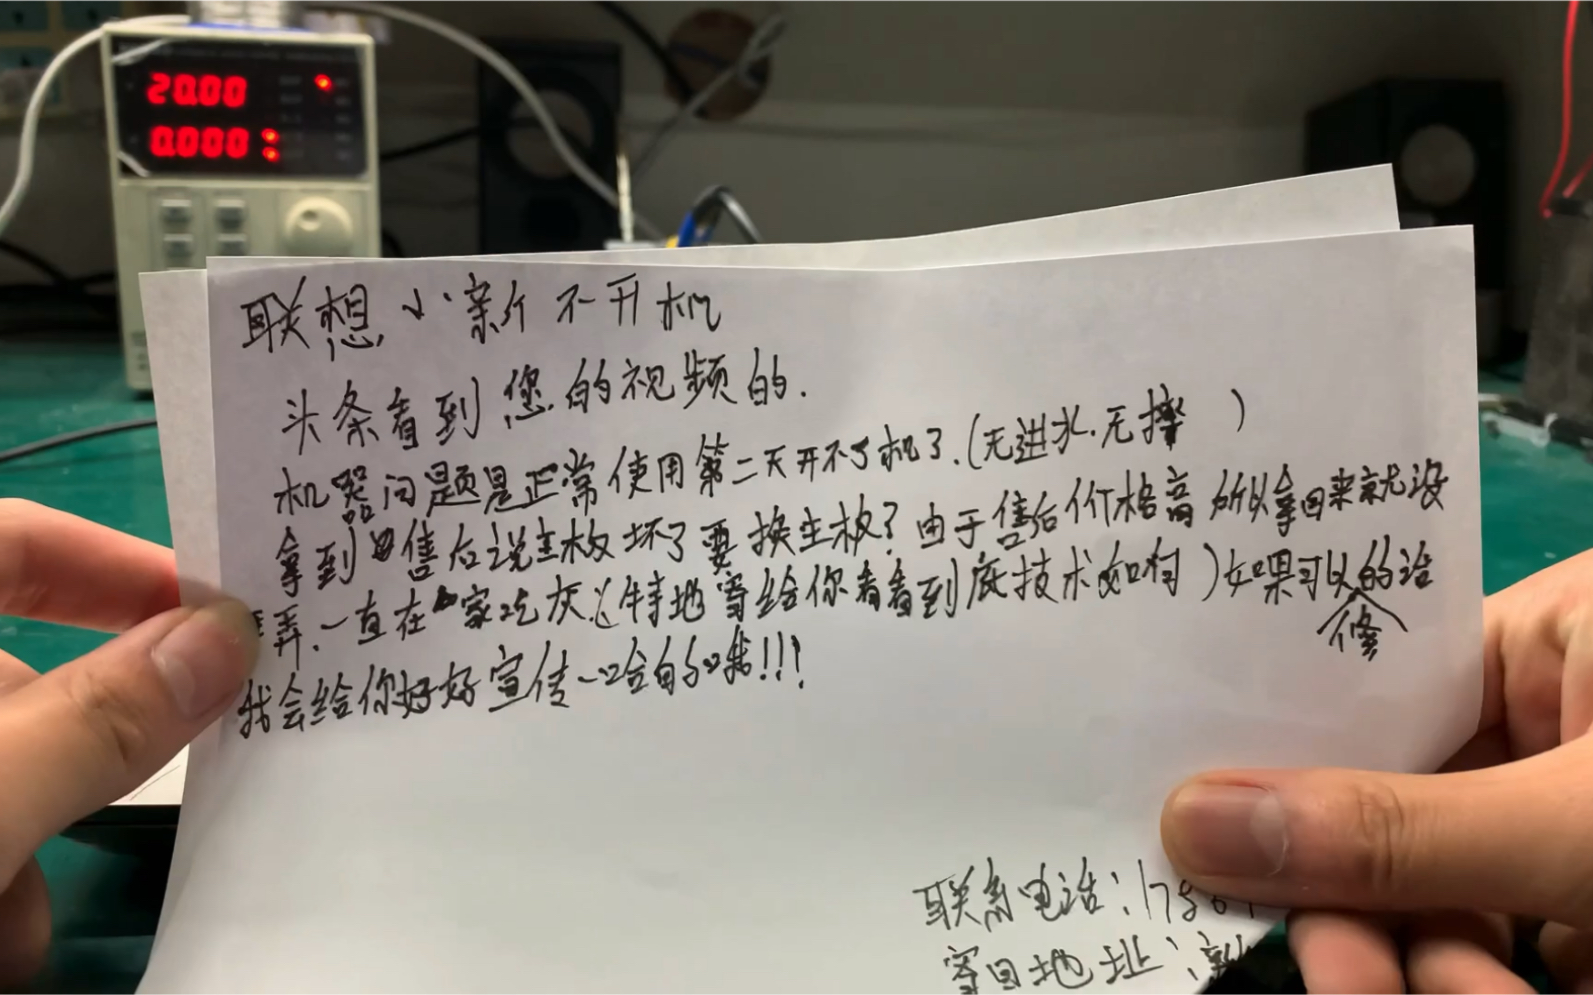 20.00
0.000
联想小新不开机
头条看到您的视频的.
机器问题是正常使用第二天开不了机了.(无进水.无摔 )
拿到 售后说主板坏了要换主板？由于售后价格高所以拿回来就没
弄.一直在 家吃灰.(特地寄给你看看到底技术如何)如果可以修的话
我会给你好好宣传一哈的哦!!!
联系电话:1786
寄回地址: